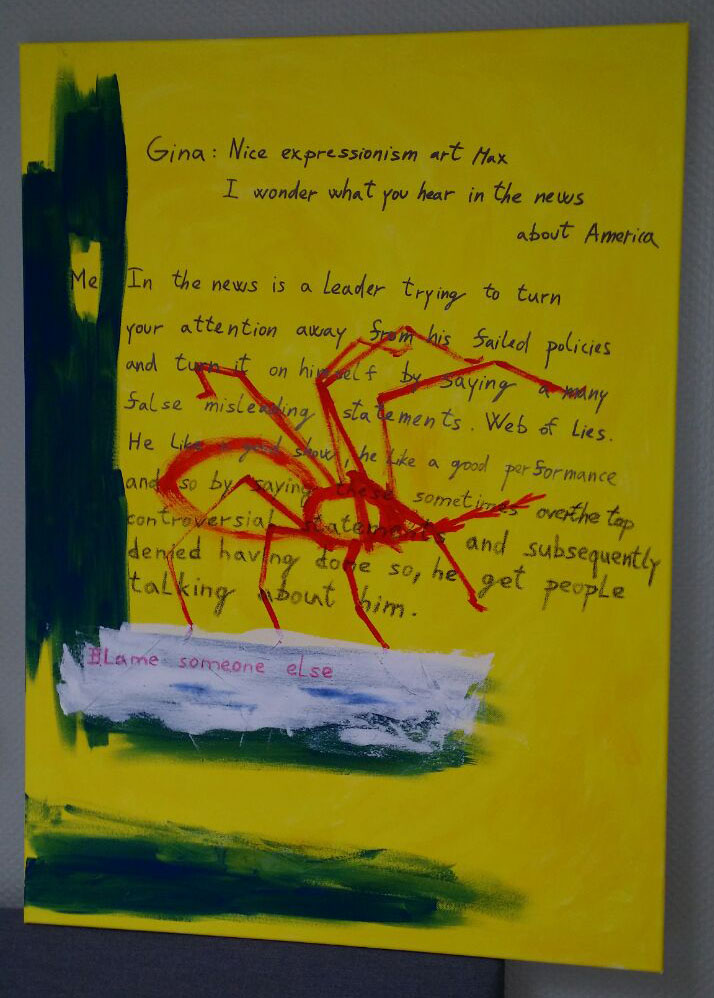 Gina: Nice expressionism art Max
I wonder what you hear in the news
about America
Me In the news is a leader trying to turn
your attention away from his failed policies
and turn it on himself by saying a many
false misleading statements. Web of Lies.
He like a good show, he like a good performance
and so by saying these sometimes overthe top
controversial statements and subsequently
denied having done so, he get people
talking about him.
Blame someone else